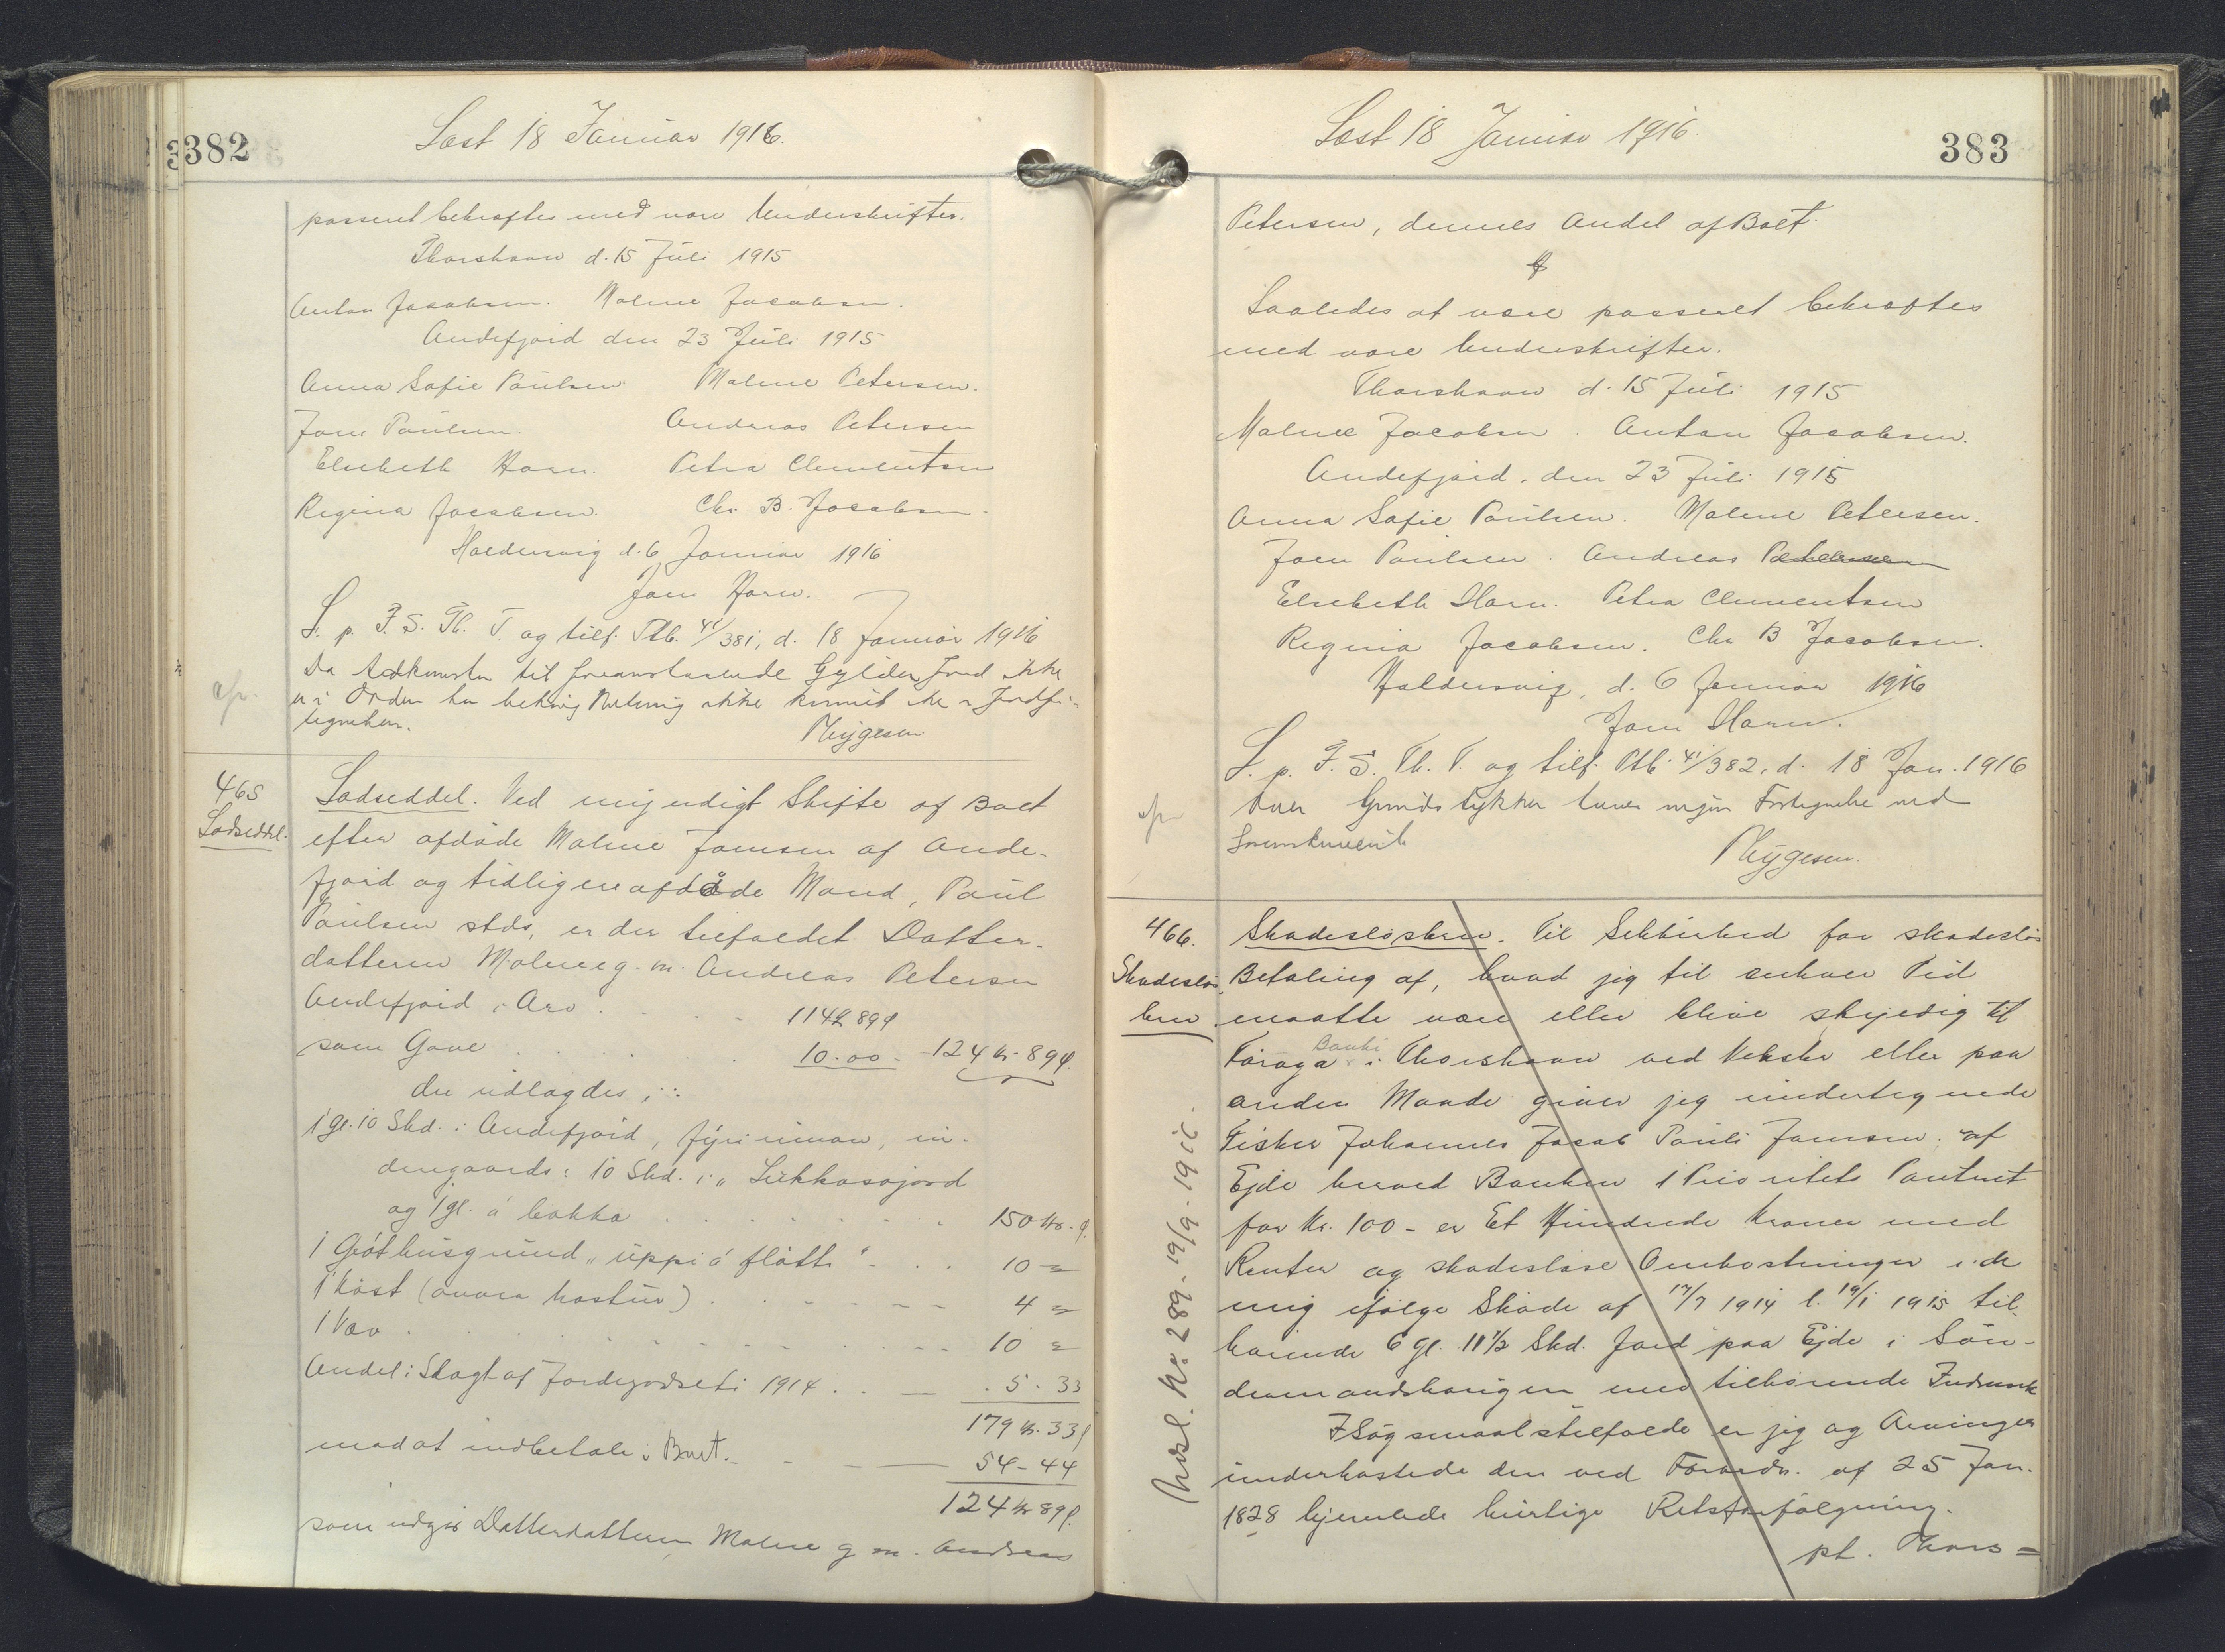 382
Læst 18 Januar 1916.
passeret bekræftes med vore Underskrifter.
Thorshavn d. 15 Juli 1915
Anton Jacobsen. Malene Jacobsen.
Andefjord den 23 Juli 1915
Anna Sofie Poulsen Malene Petersen.
Joen Poulsen. Andreas Petersen
Elsebeth Horn. Petra Clementsen
Regina Jacobsen. Chr. B. Jacobsen.
Haldersvig d. 6 Januar 1916
Joen Horn.
L. p. F. S. Th. T. og tilf. Ptb. 41/381, d. 18 Januar 1916
Da Adkomsten til foranstaaende Gylden Jord ikke
er i Orden har behørig Notering ikke kunnet ske i Jordfor-
tegnelsen.
Mygesen
465
Lodseddel.
Lodseddel. Ved myndigt Skifte af Boet
efter afdøde Malene Joensen af Ande-
fjord og tidligere afdøde Mand, Poul
Poulsen stds, er der tilfaldet Datter-
datteren Malene g. m. Andreas Petersen
Andefjord i Arv . . . . 114 kr 89 ø
som Gave . . . . 10.00 - 124 kr. 89 ø.
der udlagdes i:
1 gl. 10 Skd. i Andefjord, fyri innan, in-
dengaards: 10 Skd. i „Lukkasojord
og 1 gl. á bakka . . . . 150 kr. ø.
1 Gróthusgrund „uppi á fløtti" . . 10 =
1 Kost (ovara kostur) . . . . 4 =
1 Vov . . . . 10 =
Andel i Slagt af Jordegodset i 1914 . . . 5. 33
179 kr. 33 ø
mod at indbetale i Boet. 54 - 44
124 kr 89 ø.
som udgør Datterdatteren Malene g m. Andreas
383
Læst 18 Januar 1916.
Petersen, dennes Andel af Boet.
Saaledes at være passeret bekræftes
med vore Underskrifter.
Thorshavn d. 15 Juli 1915
Malene Jacobsen. Anton Jacobsen.
Andefjord, den 23 Juli 1915
Anna Sofie Poulsen. Malene Petersen.
Joen Poulsen. Andreas Petersen
Elsebeth Horn. Petra Clementsen
Regina Jacobsen. Chr B Jacobsen.
Haldersvig, d. 6 Januar 1916
Joen Horn.
L. p. F. S. Th. T. og tilf. Ptb. 41/382, d. 18 Jan. 1916
Over Grundstykker haves ingen Fortegnelse ved
Sorenskriveriet
Mygesen.
466.
Skadesløs
brev
Skadesløsbrev. Til Sikkerhed for skadesløs
Betaling af, hvad jeg til enhver Tid
maatte være eller blive skyldig til
Føroya Banki i Thorshavn ved Veksler eller paa
anden Maade giver jeg undertegnede
Fisker Johannes Jacob Pauli Joensen af
Ejde herved Banken 1 Prioritets Panteret
for Kr. 100 - er Et Hundrede Kroner med
Renter og skadesløse Omkostninger i de
mig ifølge Skøde af 17/7 1914 l. 19/1 1915 til-
hørende 6 gl. 11 1/2 Skd. Jord paa Ejde i Søn-
dremandshavigen med tilhørende Indmark
I Søgsmaalstilfælde er jeg og Arvinger
underkastede den ved Forordn. af 25 Jan.
1828 hjemlede hurtige Retsforfølgning.
pt. Thors=
Udsl. Nr. 289 - 19/9 - 1916.